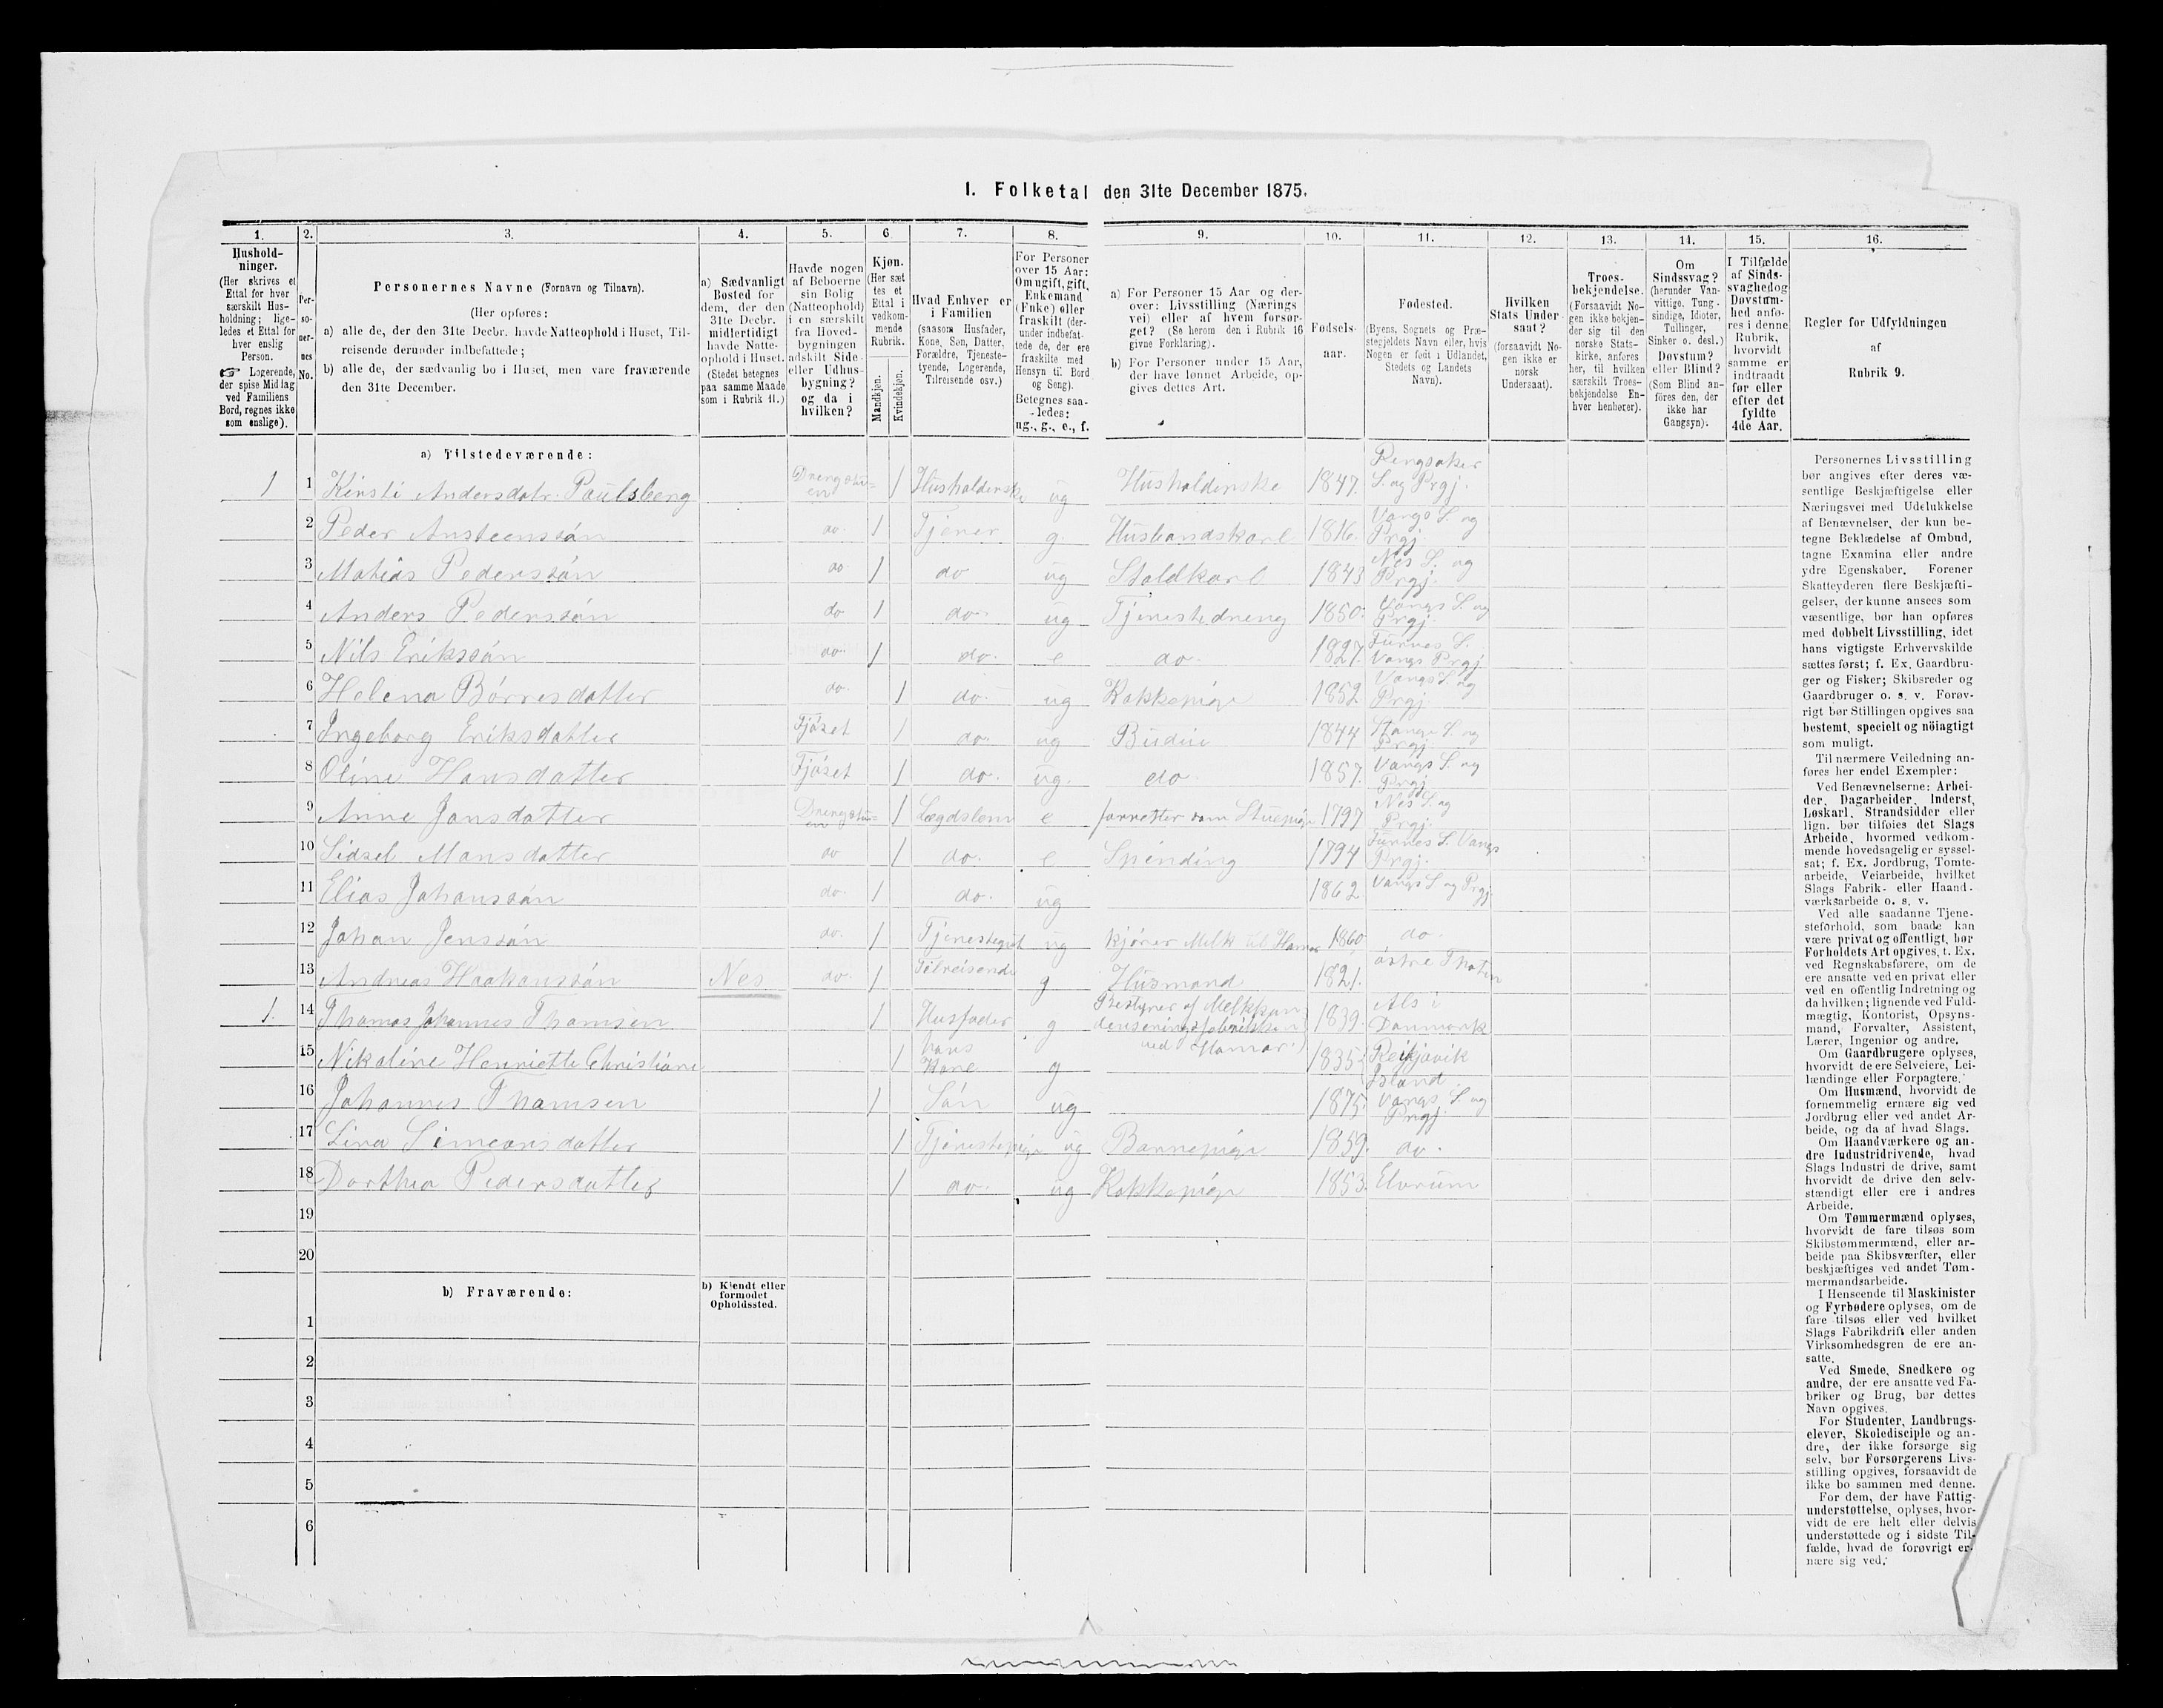 I. Folketal den 31te December 1875.
1. 2. 3. 4. 5. 6 7. 8. 9. 10. 11. 12. 13. 14. 15. 16.
Hushold-
ninger.
(Her skrives et
Ettal for hver
særskilt Hus-
holdning; lige-
ledes et Ettal for
hver enslig
Person.
☞ Logerende,
der spise Middag
ved Familiens
Bord, regnes ikke
som enslige).
Per-
so-
ner-
nes
No.
Personernes Navne (Fornavn og Tilnavn).
(Her opføres:
a) alle de, der den 31te Decbr. havde Natteophold i Huset, Til-
reisende derunder indbefattede;
b) alle de, der sædvanlig bo i Huset, men vare fraværende
den 31te December.
a) Sædvanligt
Bosted for
dem, der den
31te Decbr.
midlertidigt
havde Natte-
ophold i Huset.
(Stedet betegnes
paa samme Maade
som i Rubrik 11.)
Havde nogen
af Beboerne
sin Bolig
(Natteophold)
i en særskilt
fra Hoved-
bygningen
adskilt Side-
eller Udhus-
bygning?
og da i
hvilken?
Kjøn.
(Her sæt
tes et
Ettal i
vedkom-
mende
Rubrik.
Mandkjøn.
Kvindekjøn.
Hvad Enhver er
i Familien
(saasom Husfader,
Kone, Søn, Datter,
Forældre, Tjeneste-
tyende, Logerende,
Tilreisende osv.)
For Personer
over 15 Aar:
Om ugift, gift,
Enkemand
(Enke) eller
fraskilt (der-
under indbefat-
tede de, der ere
fraskilte med
Hensyn til Bord
og Seng).
Betegnes saa-
ledes:
ug., g., e., f.
a) For Personer 15 Aar og der-
over: Livsstilling (Nærings
vei) eller af hvem forsør-
get? (Se herom den i Rubrik 16
givne Forklaring).
b) For Personer under 15 Aar,
der have lønnet Arbeide, op-
gives dettes Art.
Fødsels-
aar.
Fødested.
(Byens, Sognets og Præ-
stegjeldets Navn eller, hvis
Nogen er født i Udlandet,
Stedets og Landets
Navn).
Hvilken
Stats Under
saat?
(forsaavidt No-
gen ikke er
norsk
Undersaat).
Troes-
bekjendelse.
(Forsaavidt No-
gen ikke bekjen-
der sig til den
norske Stats-
kirke, anføres
her, til hvilken
særskilt Troes-
bekjendelse En-
hver henhører).
Om
Sindssvag?
(herunder Van-
vittige, Tung-
sindige, Idioter,
Tullinger,
Sinker o. desl.)
Døvstum?
eller Blind?
(Som Blind an-
föres den, der
ikke har
Gangsyn).
I Tilfælde
af Sinds-
svaghed og
Døvstum-
hed anfø-
res i denne
Rubrik,
hvorvidt
samme er
indtraadt
før eller
efter det
fyldte
4de Aar.
Regler for Udfyldningen
af
Rubrik 9.
a) Tilstedeværende:
1 1 Kirsti Andersdatr. Paulsberg Drengstu-en 1 Husholderske ug Husholderske 1847. Ringsaker S. og Prgj.
2 Peder Ansteenssön do. 1 Tjener g. Husbandskarl 1816. Vangs S. og Prgj.
3 Matias Pederssön do 1 do ug Staldkarl 1843 Nes S. og Prgj.
4 Anders Pederssön do 1 do. ug Tjenestedreng 1850. Vangs S. og Prgj.
5 Nils Erikssön do. 1 do. e do. 1827. Furnes S. Vangs Prgj
6 Helena Börresdatter do. 1 do. ug Kokkepige 1852 Vangs S. og Prgj.
7 Ingeborg Eriksdatter Fjöset 1 do. ug Budeie 1844 Stange S. og Prgj.
8 Oline Hansdatter Fjöset 1 do. ug. do. 1857. Vangs S. og Prgj
9 Anne Jonsdatter Drengstu-en 1 Lægdslem e forretter som Stuepige 1797 Nes S. og Prgj.
10 Sidsel Mansdatter do 1 do. e Spinding 1794 Furnes S. Vangs Prgj.
11 Elias Johanssön do. 1 do. ug 1862 Vangs S og Prgj.
12 Johan Jenssön do. 1 Tjenestegut ug kjörer Melk til Hamar 1860 do.
13 Andreas Haakonssön Nes do. 1 Tilreisende g Husmand 1821. östre Thoten
1. 14 Thomas Johannes Thamsen 1 Husfader g Bestyrer af Melkkon-denseringsfabrikken ved Hamar. 1839. Als i Danmark
15 Nikoline Henriette Christiane 1 hans Kone g 1835 Reikjavik Island
16 Johannes Thamsen 1 Sön ug 1875. Vangs S. og Prgj.
17 Lina Simeonsdatter 1 Tjenestepige ug Barnepige 1859. do.
18 Dorthea Pedersdatter 1 do. ug Kokkepige 1853. Elverum
19
20
b) Fraværende:
b) Kjendt eller
formodet
Opholdssted.
1
2
3
4
5
6
Personernes Livsstilling
bør angives efter deres væ-
sentlige Beskjæftigelse eller
Næringsvei med Udelukkelse
af Benævnelser, der kun be-
tegne Beklædelse af Ombud,
tagne Examina eller andre
ydre Egenskaber. Forener
Skatteyderen flere Beskjæfti-
gelser, der kunne ansees som
væsentlige, bør han opføres
med dobbelt Livsstilling, idet
hans vigtigste Erhvervskilde
sættes først; f. Ex. Gaardbru-
ger og Fisker; Skibsreder og
Gaardbruger o. s. v. Forøv-
rigt bør Stillingen opgives saa
bestemt, specielt og nöiagtigt
som muligt.
Til nærmere Veiledning an-
føres her endel Exempler:
Ved Benævnelserne: Arbei-
der, Dagarbeider, Inderst,
Løskarl, Strandsidder eller
lign. bør tilføies det Slags
Arbeide, hvormed vedkom-
mende hovedsagelig er syssel-
sat; f. Ex. Jordbrug, Tomte-
arbeide, Veiarbeide, hvilket
Slags Fabrik- eller Haand-
værksarbeide o. s. v.
Ved alle saadanne Tjene-
steforhold, som baade kan
være privat og offentligt, bør
Forholdets Art opgives, t. Ex.
ved Regnskabsførere, om de
ere ansatte ved en privat eller
ved en offentlig Indretning og
da hvilken; lignende ved Fuld-
mægtig, Kontorist, Opsyns-
mand, Forvalter, Assistent,
Lærer, Ingeniør og andre.
Om Gaardbrugere oplyses,
hvorvidt de ere Selveiere, Lei-
lændinge eller Forpagtere.
Om Husmænd, hvorvidt de
fornemmelig ernære sig ved
Jordbrug eller ved andet Ar-
beide, og da af hvad Slags.
Om Haandværkere og an-
dre Industridrivende, hvad
Slags Industri de drive, samt
hvorvidt de drive den selv-
stændigt eller ere i andres
Arbeide.
Om Tømmermænd oplyses,
hvorvidt de fare tilsøs som
Skibstømmermænd, eller ar-
beide paa Skibsværfter, eller
beskjæftiges ved andet Tøm-
mermandsarbeide.
I Henseende til Maskinister
og Fyrbødere oplyses, om de
fare tilsøs eller ved hvilket
Slags Fabrikdrift eller anden
Virksomhedsgren de ere an-
satte.
Ved Smede, Snedkere og
andre, der ere ansatte ved Fa-
briker og Brug, bør dettes
Navn opgives.
For Studenter, Landbrugs-
elever, Skoledisciple og an-
dre, der ikke forsørge sig
selv, bør Forsørgerens Livs-
stilling opgives, forsaavidt de
ikke bo sammen med denne.
For dem, der have Fattig-
understøttelse, oplyses, hvor-
vidt de ere helt eller delvis
understøttede og i sidste Til-
fælde, hvad de forøvrigt er-
nære sig ved.